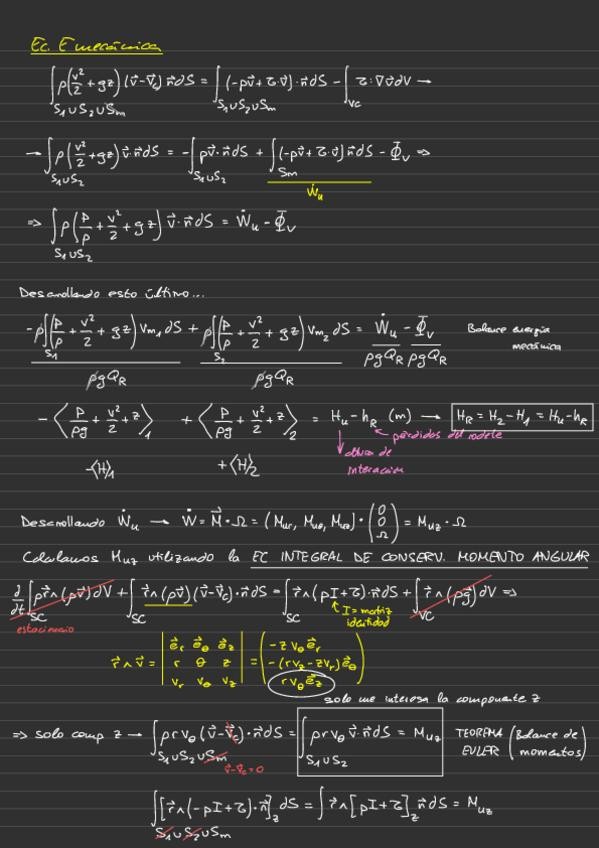 Ec. E mecánica
∫_{S₁∪S₂∪Sm} ρ(v²/2 + gz)(v⃗-v⃗c)·n⃗dS = ∫_{S₁∪S₂∪Sm} (-pv⃗+τ·v⃗)·n⃗dS - ∫_{VC} τ:∇v⃗dV →
→ ∫_{S₁∪S₂} ρ(v²/2 + gz) v⃗·n⃗dS = -∫_{S₁∪S₂} pv⃗·n⃗dS + ∫_{Sm} (-pv⃗+τ·v⃗)n⃗dS - Φ_v ⇒
Ẇu
⇒ ∫_{S₁∪S₂} ρ(p/ρ + v²/2 + gz) v⃗·n⃗dS = Ẇu - Φ_v
Desarrollando esto último...
-ρ∫_{S₁}(p/ρ + v²/2 + gz) v_{m1} dS + ρ∫_{S₂}(p/ρ + v²/2 + gz) v_{m2} dS = Ẇu - Φ_v Balance energía mecánica
ρgQ_R ρgQ_R ρgQ_R ρgQ_R
-⟨p/ρg + v²/2 + z⟩₁ + ⟨p/ρg + v²/2 + z⟩₂ = Hu - h_R (m) → H_R = H₂ - H₁ = Hu - h_R
pérdidas del rodete
altura de interacción
-⟨H⟩₁ +⟨H⟩₂
Desarrollando Ẇu → Ẇ = M⃗·Ω = (Mur, Muθ, Muz)·(0 0 Ω) = Muz·Ω
Calculamos Muz utilizando la EC INTEGRAL DE CONSERV. MOMENTO ANGULAR
∂/∂t ∫_{SC} ρr⃗∧(ρv⃗)dV + ∫_{SC} r⃗∧(ρv⃗)(v⃗-v⃗c)·n⃗dS = ∫_{SC} r⃗∧(pI+τ)·n⃗dS + ∫_{VC} r⃗∧(ρg⃗)dV ⇒
estacionario
I = matriz identidad
r⃗∧v⃗ = | e⃗r e⃗θ e⃗z ; r θ z ; vr vθ vz | = ( -z vθ e⃗r ; -(r vz - z vr) e⃗θ ; r vθ e⃗z )
solo me interesa la componente z
⇒ solo comp z → ∫_{S₁∪S₂∪Sm} ρrvθ(v⃗-v⃗c)·n⃗dS = ∫_{S₁∪S₂} ρrvθ v⃗·n⃗dS = Muz TEOREMA EULER (Balance de momentos)
v⃗-v⃗c=0
∫_{S₁∪S₂∪Sm} [r⃗∧(-pI+τ)·n⃗]_z dS = ∫ r⃗∧[pI+τ]_z n⃗dS = Muz